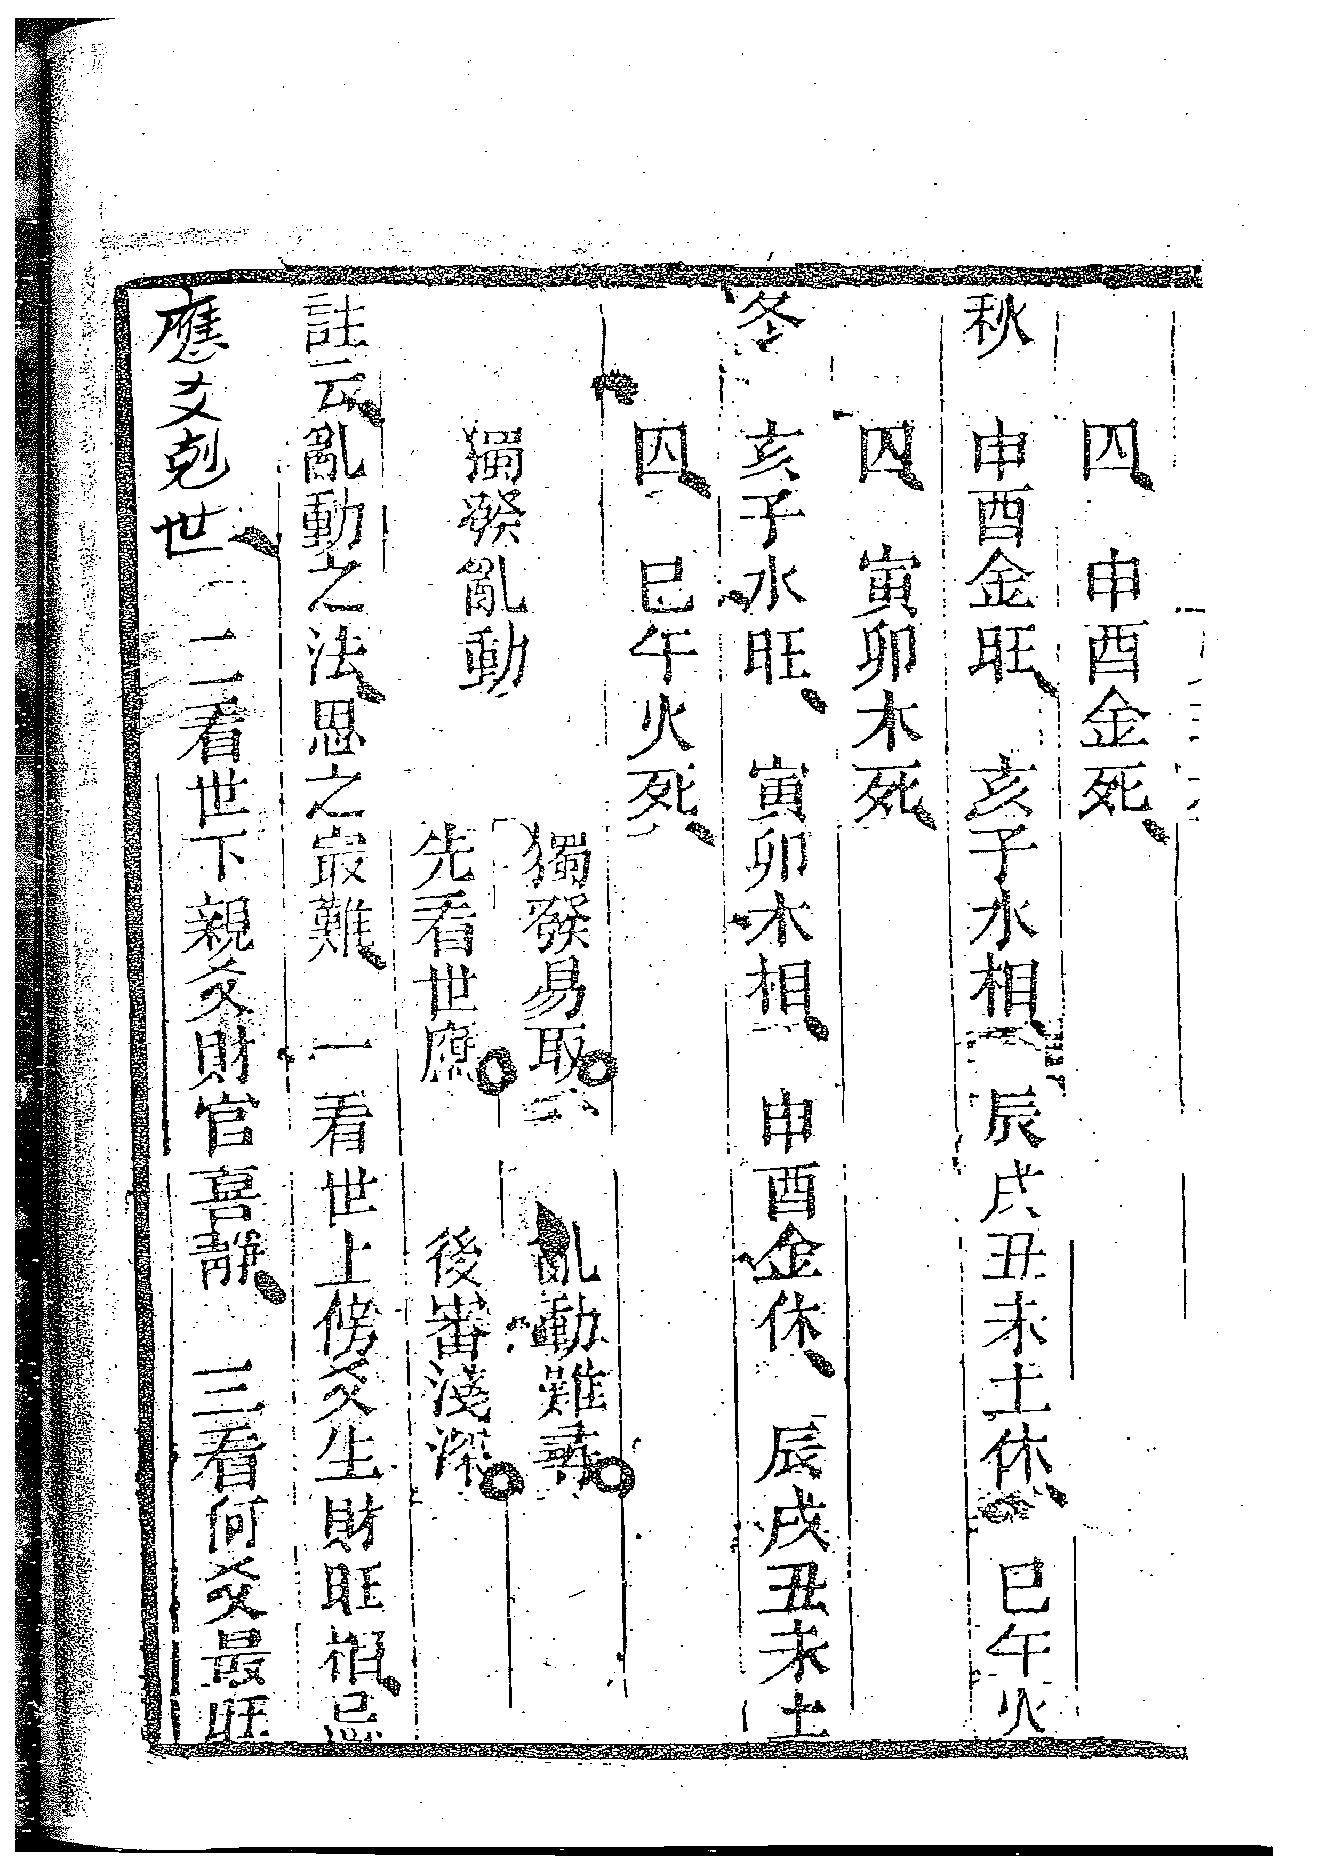 囚　申酉金死
秋　申酉金旺　亥子水相　辰戌丑未土休　巳午火
囚　寅卯木死
冬　亥子水旺　寅卯木相　申酉金休　辰戌丑未土
囚　巳午火死
獨發亂動
獨發易取　亂動難尋
先看世應　後審淺深
註云亂動之法思之最難　一看世上傍爻生財旺相忌
應爻剋世　二看世下親爻財官喜靜　三看何爻最旺